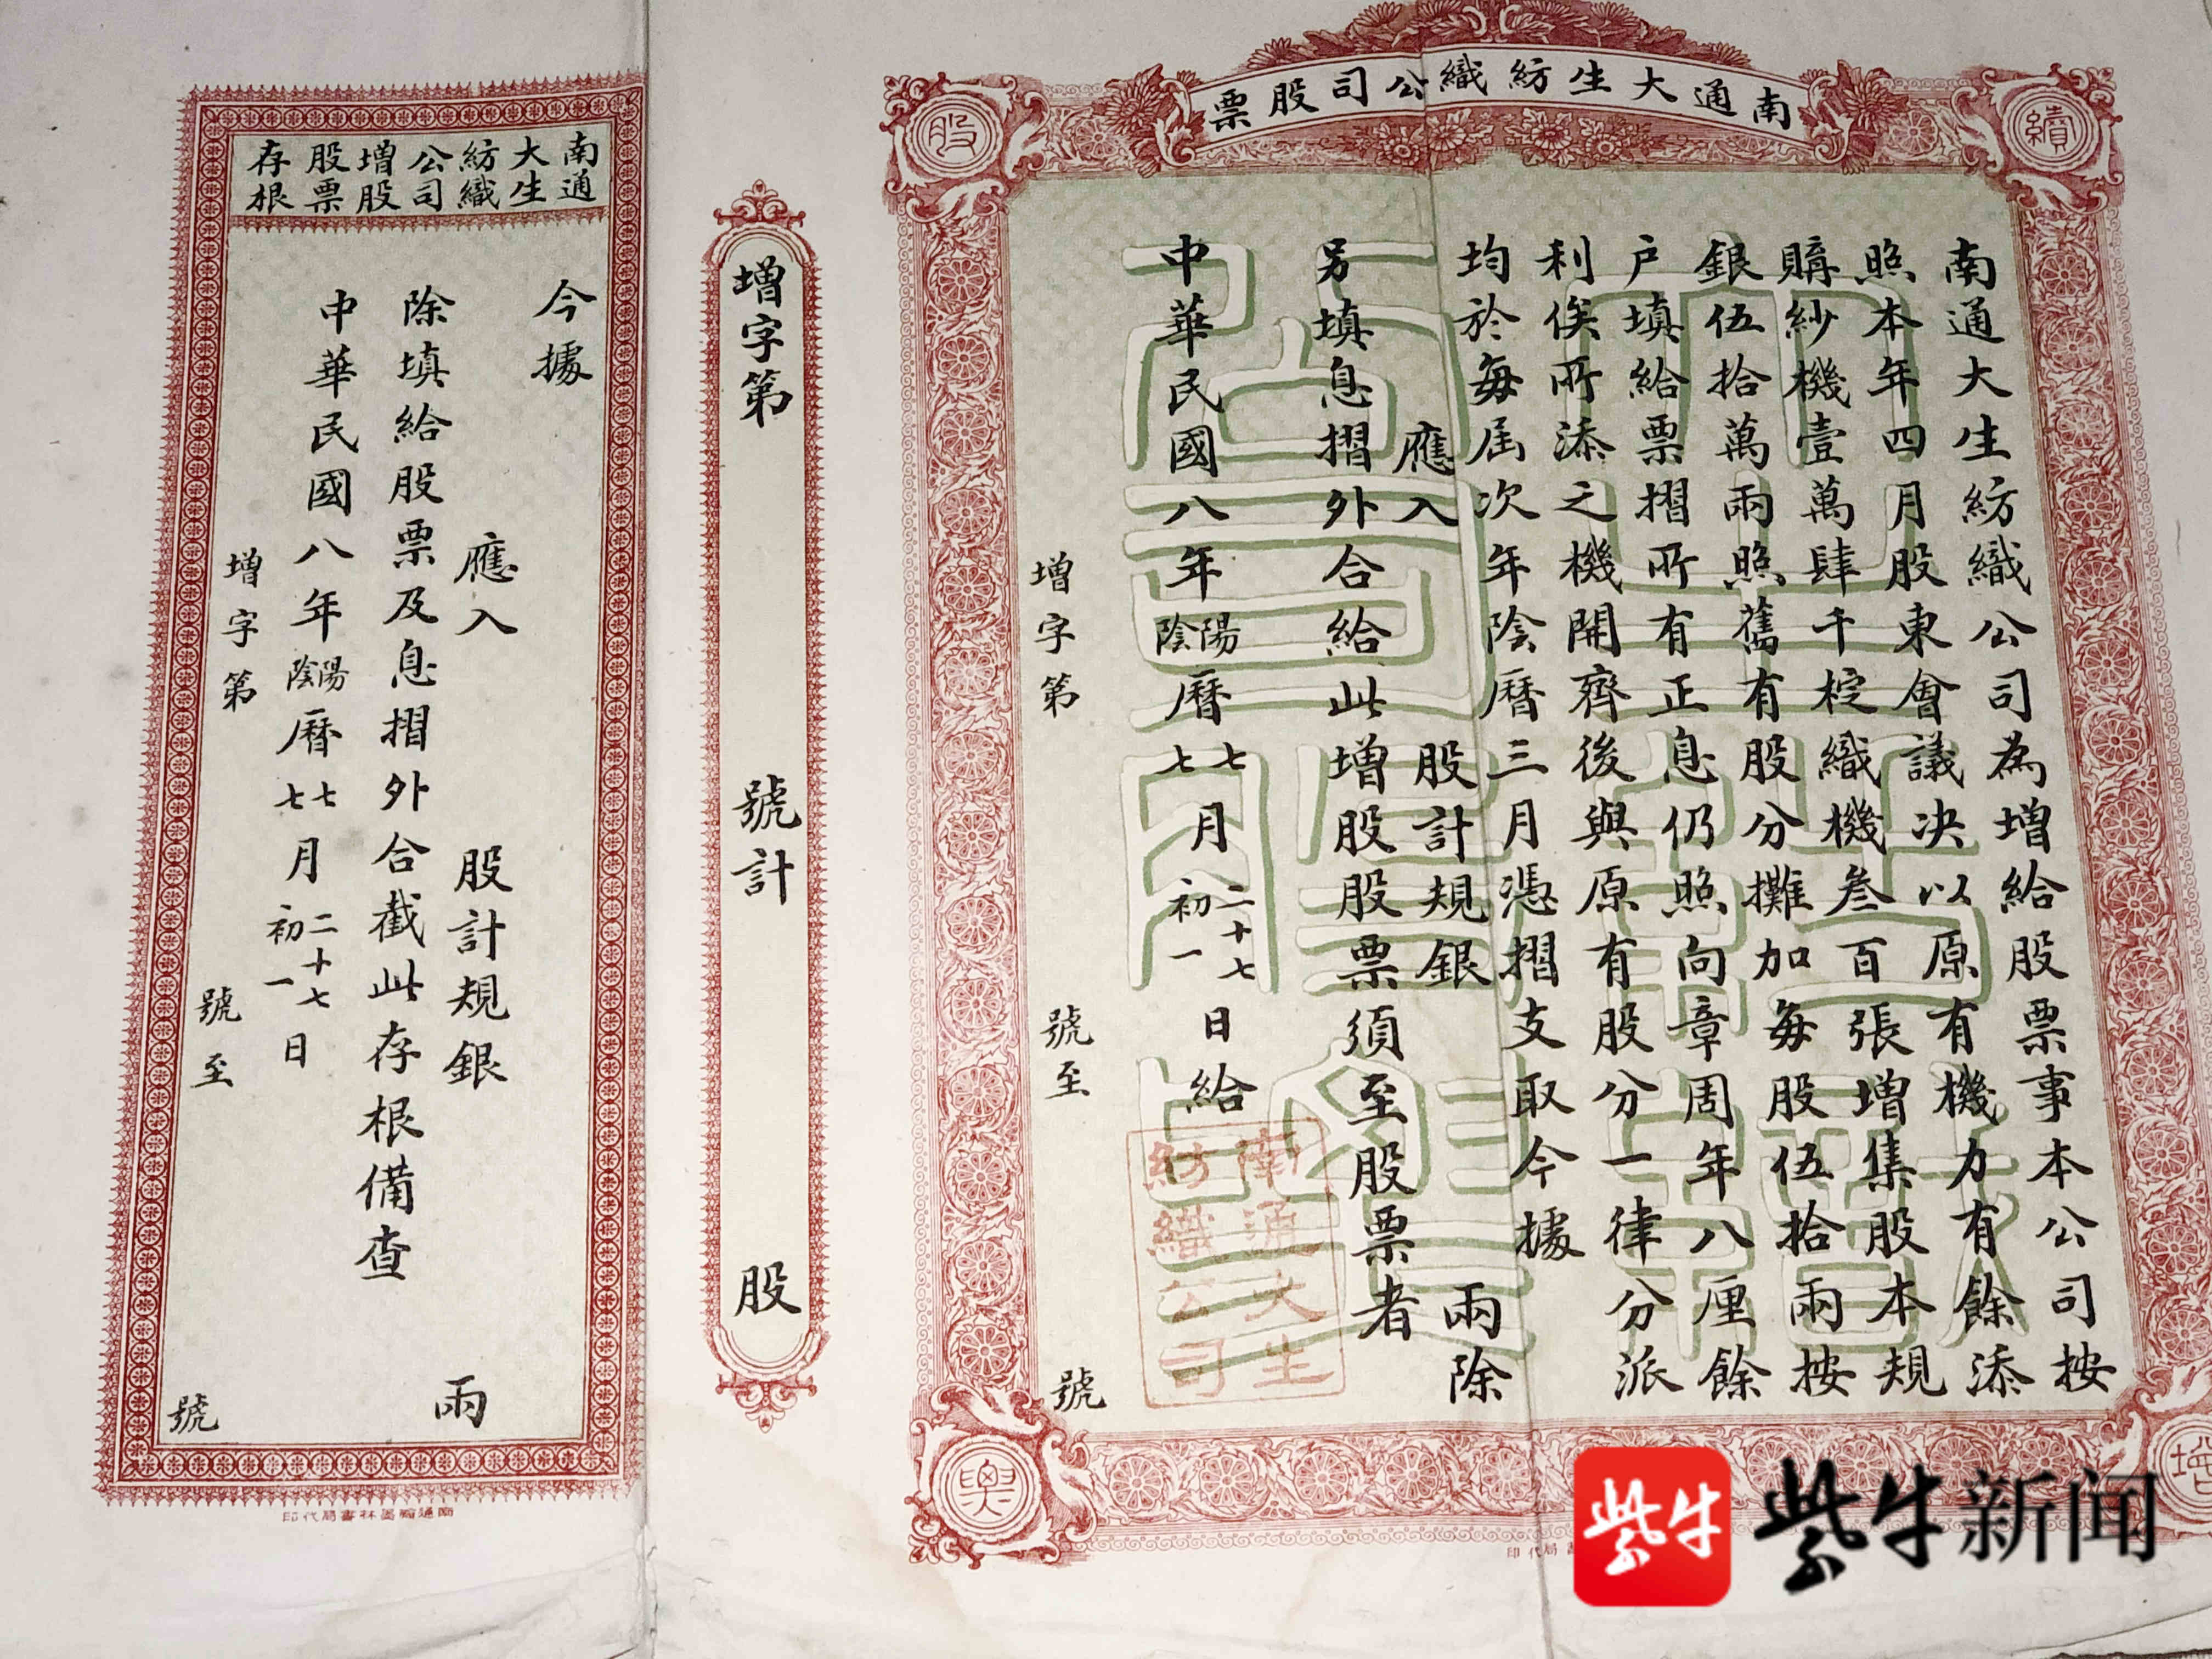 南通大生紡織公司股票
續
股
南通大生紡織公司為增給股票事本公司按
照本年四月股東會議決以原有機力有餘添
購紗機壹萬肆千梃織機叁百張增集股本規
銀伍拾萬兩照舊有股分攤加每股伍拾兩按
戶填給票摺所有正息仍照向章周年八厘餘
利俟所添之機開齊後與原有股分一律分派
均於每屆次年陰曆三月憑摺支取今據
應入 股計規銀 兩除
另填息摺外合給此增股股票須至股票者
中華民國八年陽陰曆七七月二十七初一日給
增字第 號至 號
南通大生
紡織公司
增
輿
增字第 號計 股
南通大生紡織公司增股股票存根
今據
應入 股計規銀 兩
除填給股票及息摺外合截此存根備查
中華民國八年陽陰曆七七月二十七初一日
增字第 號至 號
南通翰墨林書局代印
局代印
紫牛
紫牛新闻